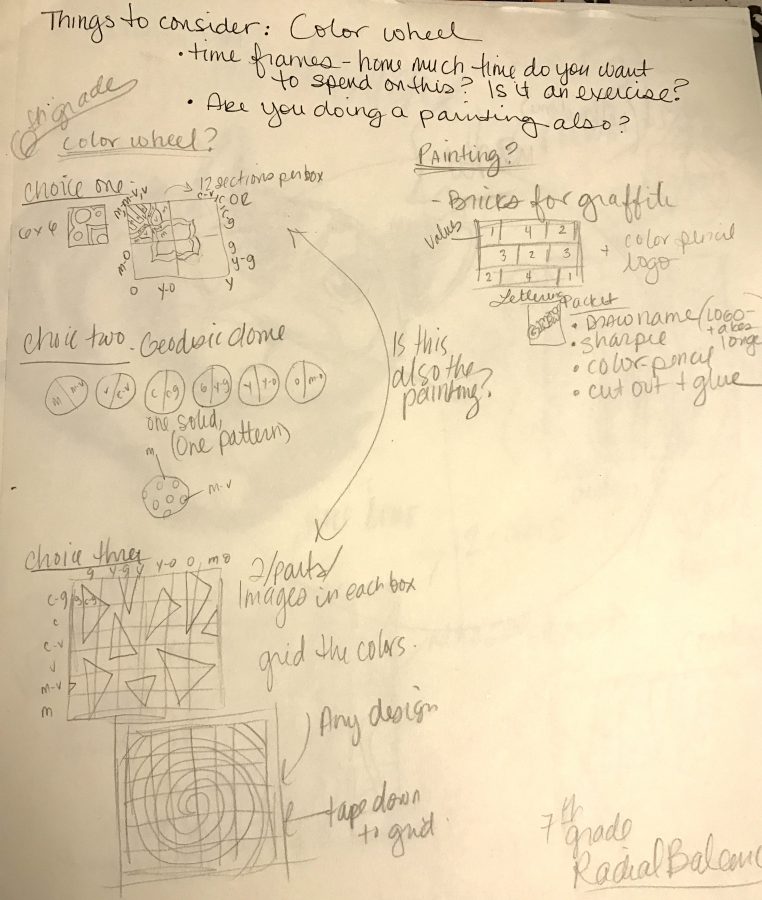 Things to consider: Color wheel
• time frames - how much time do you want
to spend on this? Is it an exercise?
• Are you doing a painting also?
6th grade
color wheel?
choice one-
12 sections per box
6x6
OR
m-o
o
y-o
y
y-g
g
choice two - Geodesic dome
m m-v
v c-v
c c-g
g y-g
y y-o
o m-o
one solid,
(One pattern)
m
m-v
choice three
g y-g y y-o o m-o
c-g
c
c-v
v
m-v
m
2/parts/
Images in each box
grid the colors.
Any design
tape down
to grid
Is this
also the
painting?
Painting?
- Bricks for graffiti
values
1 4 2
3 2 3
2 4 1
+ color pencil
logo
Lettering Packet
• Draw name (LOGO-
takes
longer
• sharpie
• color pencil
• cut out + glue
7th
grade
Radial Balance